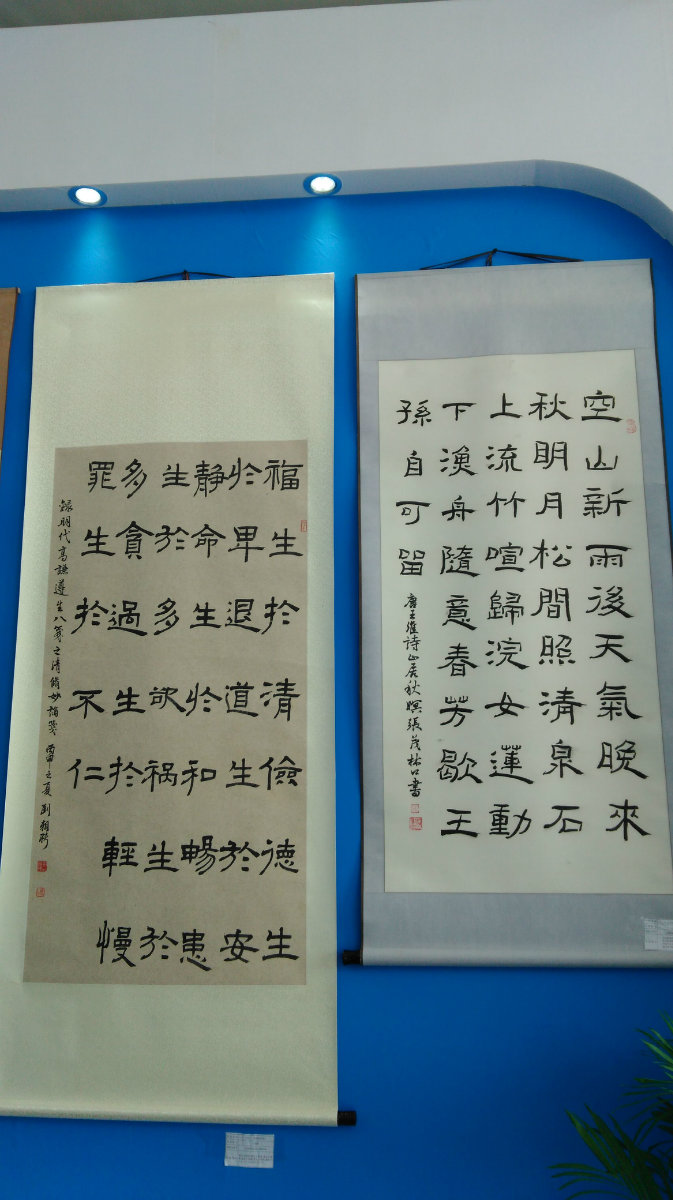 空山新雨後天氣晚來
秋明月松間照清泉石
上流竹喧歸浣女蓮動
下漁舟隨意春芳歇王
孫自可留
唐王維詩山居秋暝張茂林書
福生於清儉德生
於卑退道生於安
静命生於和暢患
生於多欲祸生於
多貪過生於輕慢
罪生於不仁
錄明代高謙遵生八箋之清修妙論箋丙申之夏刘朝